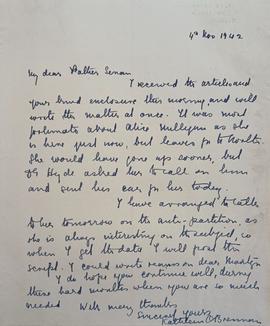 4th Nov 1942
My dear Father Senan
I received the articles and
your kind enclosure this morning, and will
write the matter at once. It was most
fortunate about Alice Milligan as she
is here just now, but leaves for to
She would have gone up sooner, but
Dr Hyde asked her to call on him
and sent his car for her today.
I have arranged to talk
to her tomorrow on the anti-partition, as
she is always interesting on the subject, so
when I get the data I will post the
script. I could write reams on dear Martyn
I do hope you continue well, during
these hard months when you are so much
needed With many thanks
Sincerely yours
Kathleen Brennan